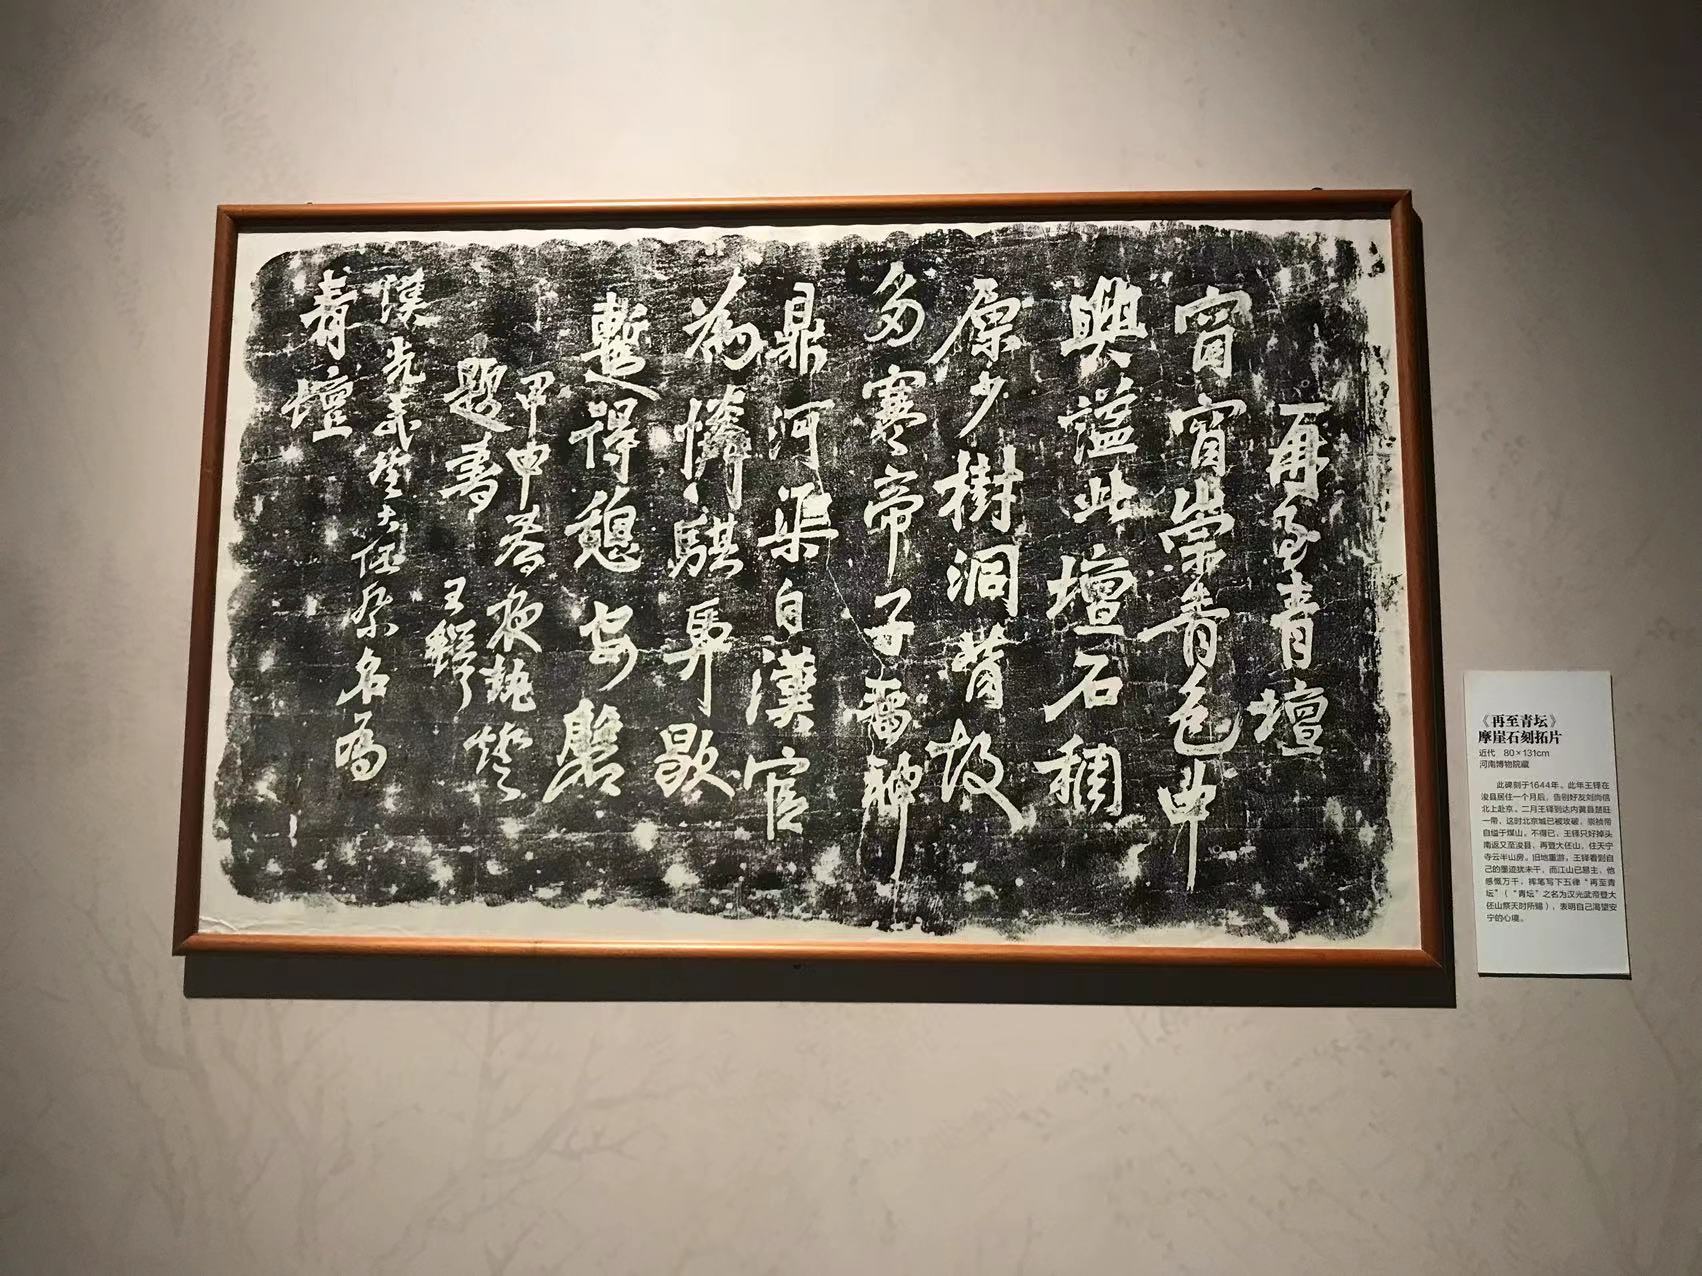 再至青壇
窅窅崇青色中
興謐此壇石稠
原少樹洞背故
多寒帝子嗇神
鼎河渠自漢官
為憐騏歇
暫得憩安磐
甲申春夜執燈
題書
王鐸
漢光武登大伾祭名為
青壇
《再至青坛》
摩崖石刻拓片
近代 80×131cm
河南博物院藏
此碑刻于1644年。此年王铎在
浚县居住一个月后，告别好友刘尚信
北上赴京。二月王铎到达内黄县楚旺
一带，这时北京城已被攻破，崇祯帝
自缢于煤山。不得已，王铎只好掉头
南返又至浚县，再登大伾山，住天宁
寺云半山房。旧地重游，王铎看到自
己的墨迹犹未干，而江山已易主，他
感慨万千，挥笔写下五律“再至青
坛”（“青坛”之名为汉光武帝登大
伾山祭天时所赐），表明自己渴望安
宁的心境。